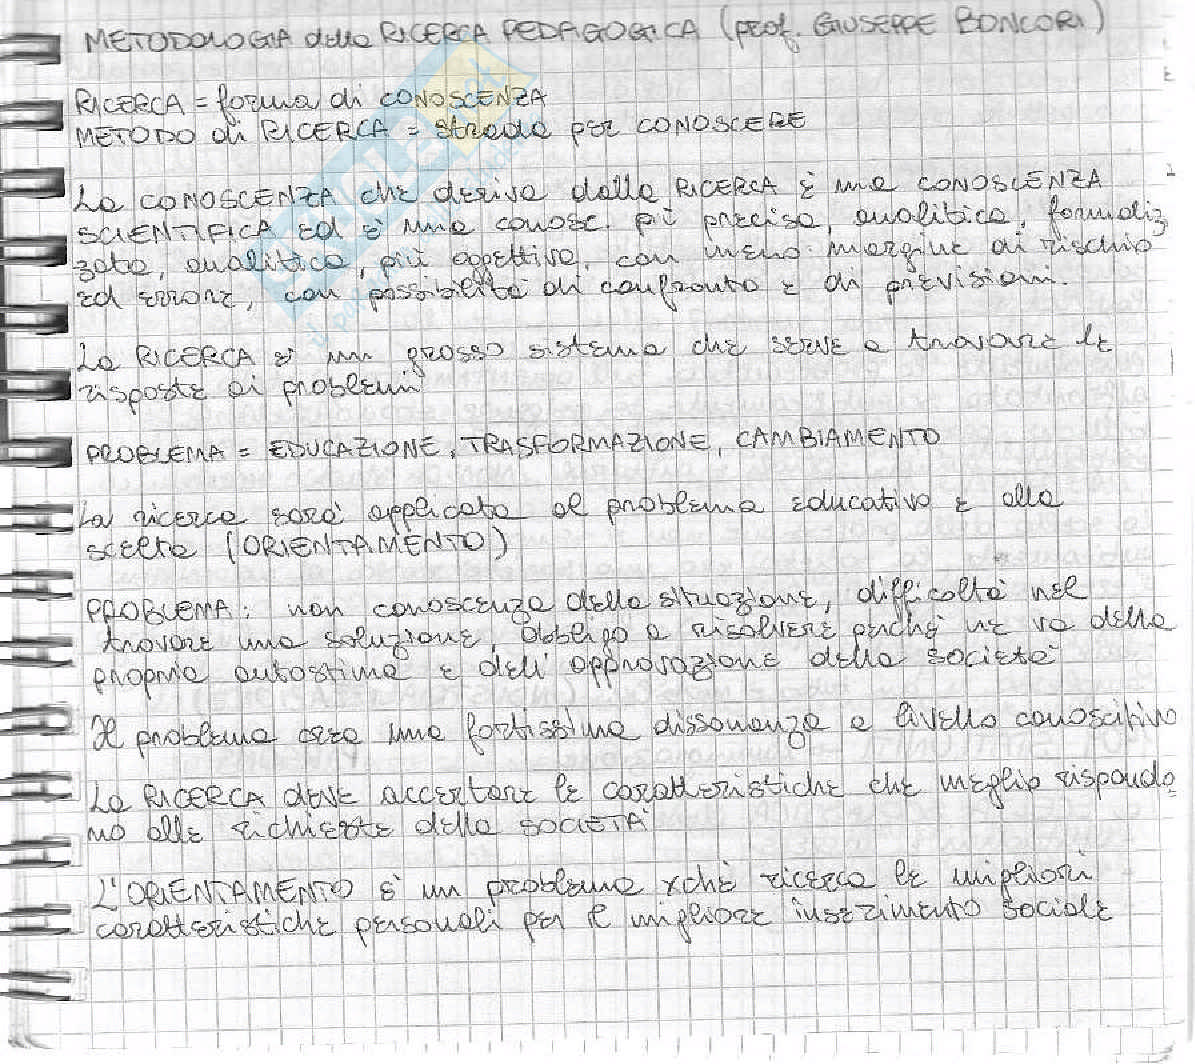 METODOLOGIA della RICERCA PEDAGOGICA (prof. GIUSEPPE BONCORI)
RICERCA = forma di CONOSCENZA
METODO di RICERCA = strada per CONOSCERE
La CONOSCENZA che deriva dalla RICERCA è una CONOSCENZA
SCIENTIFICA ed è una conosc. più precisa, analitica, formaliz
zata, analitica, più oggettiva, con meno margine di rischio
ed errore, con possibilità di confronto e di previsioni.
La RICERCA è un grosso sistema che serve a trovare le
risposte ai problemi
PROBLEMA = EDUCAZIONE, TRASFORMAZIONE, CAMBIAMENTO
La ricerca sarà applicata al problema educativo e alla
scelta (ORIENTAMENTO)
PROBLEMA: non conoscenza della situazione, difficoltà nel
trovare una soluzione, obbligo a risolvere perché ne va della
propria autostima e dell'approvazione della società
Il problema crea una fortissima dissonanza a livello conoscitivo
La RICERCA deve accertare le caratteristiche che meglio rispondo
no alle richieste della SOCIETÀ
L'ORIENTAMENTO è un problema xchè ricerca le migliori
caratteristiche personali per il migliore inserimento sociale